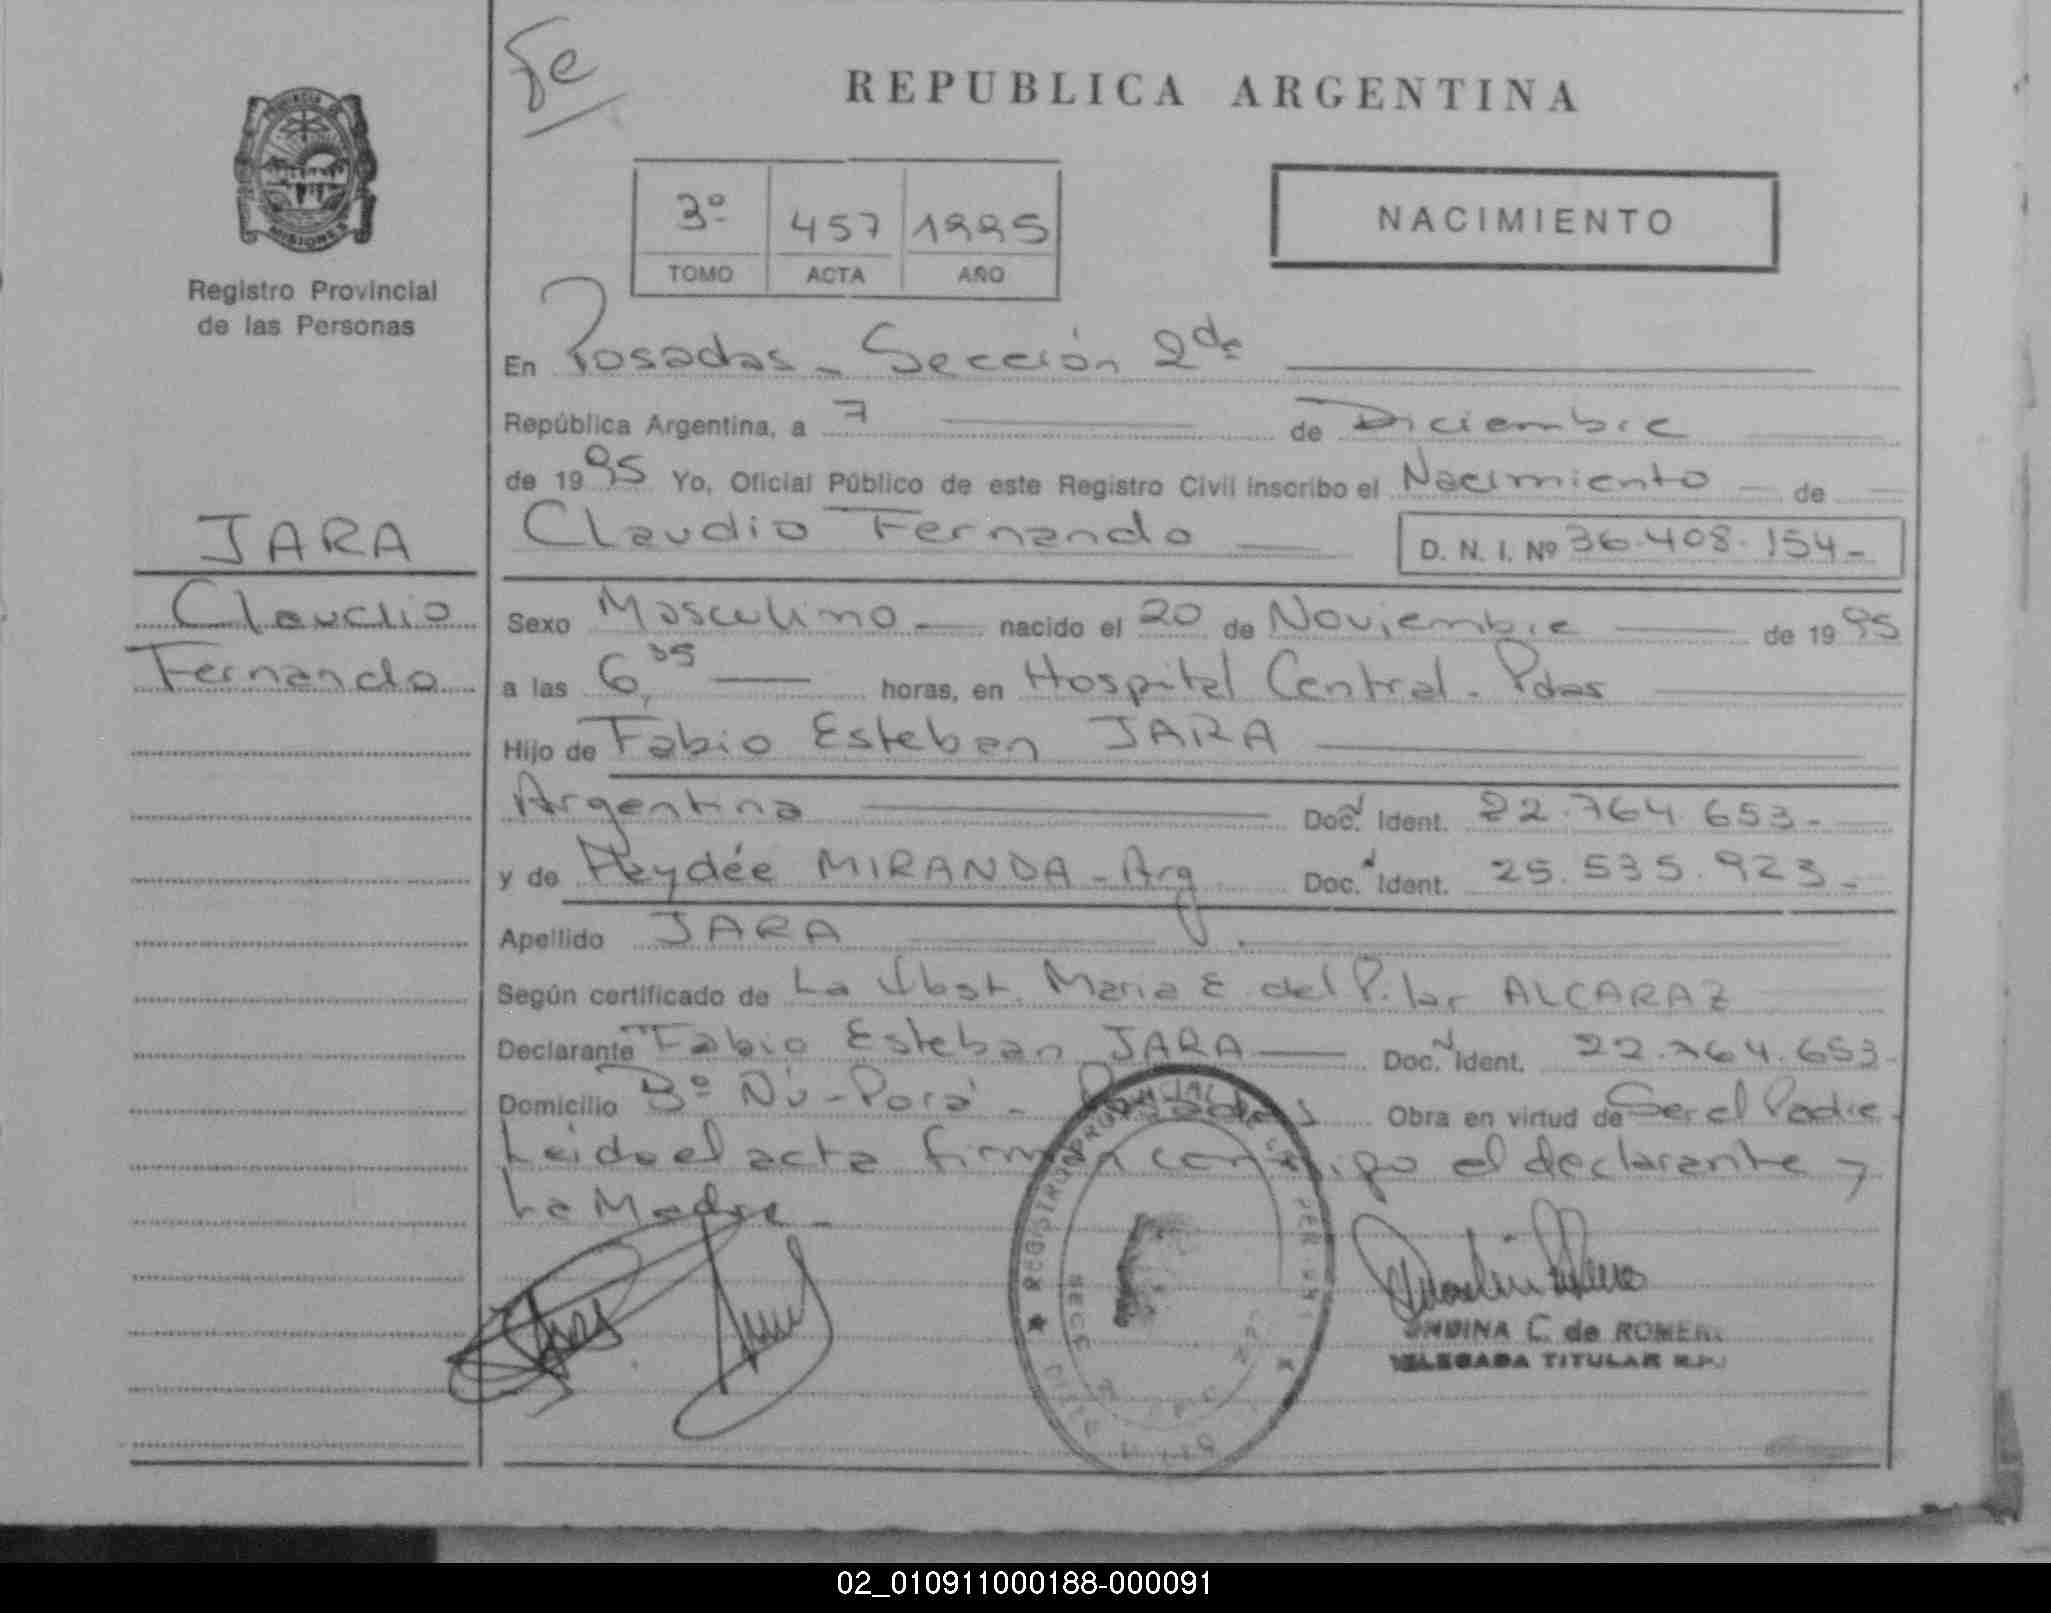 Fe
REPUBLICA ARGENTINA
3º 457 1995
TOMO ACTA AÑO
NACIMIENTO
MISIONES
Registro Provincial
de las Personas
En Posadas - Sección 2da
República Argentina, a 7 de Diciembre
de 1995 Yo, Oficial Público de este Registro Civil inscribo el Nacimiento de
Claudio Fernando D. N. I. Nº 36.408.154-
JARA
Claudio
Fernando
Sexo Masculino - nacido el 20 de Noviembre de 1995
a las 6,35 horas, en Hospital Central - Pdas
Hijo de Fabio Esteban JARA
Argentina Doc. Ident. 22.764.653-
y de Heydée MIRANDA - Arg Doc. Ident. 25.535.923-
Apellido JARA
Según certificado de La Obst. Maria E del Pilar ALCARAZ
Declarante Fabio Esteban JARA Doc. Ident. 22.764.653-
Domicilio Bº Ñu-Porá - Posadas Obra en virtud de Ser el Padre.
Leida el acta firman conmigo el declarante y
La Madre -
REGISTRO PROVINCIAL DE LAS PERSONAS
C. de ROMERO
DELEGADA TITULAR R.P.
02_010911000188-000091